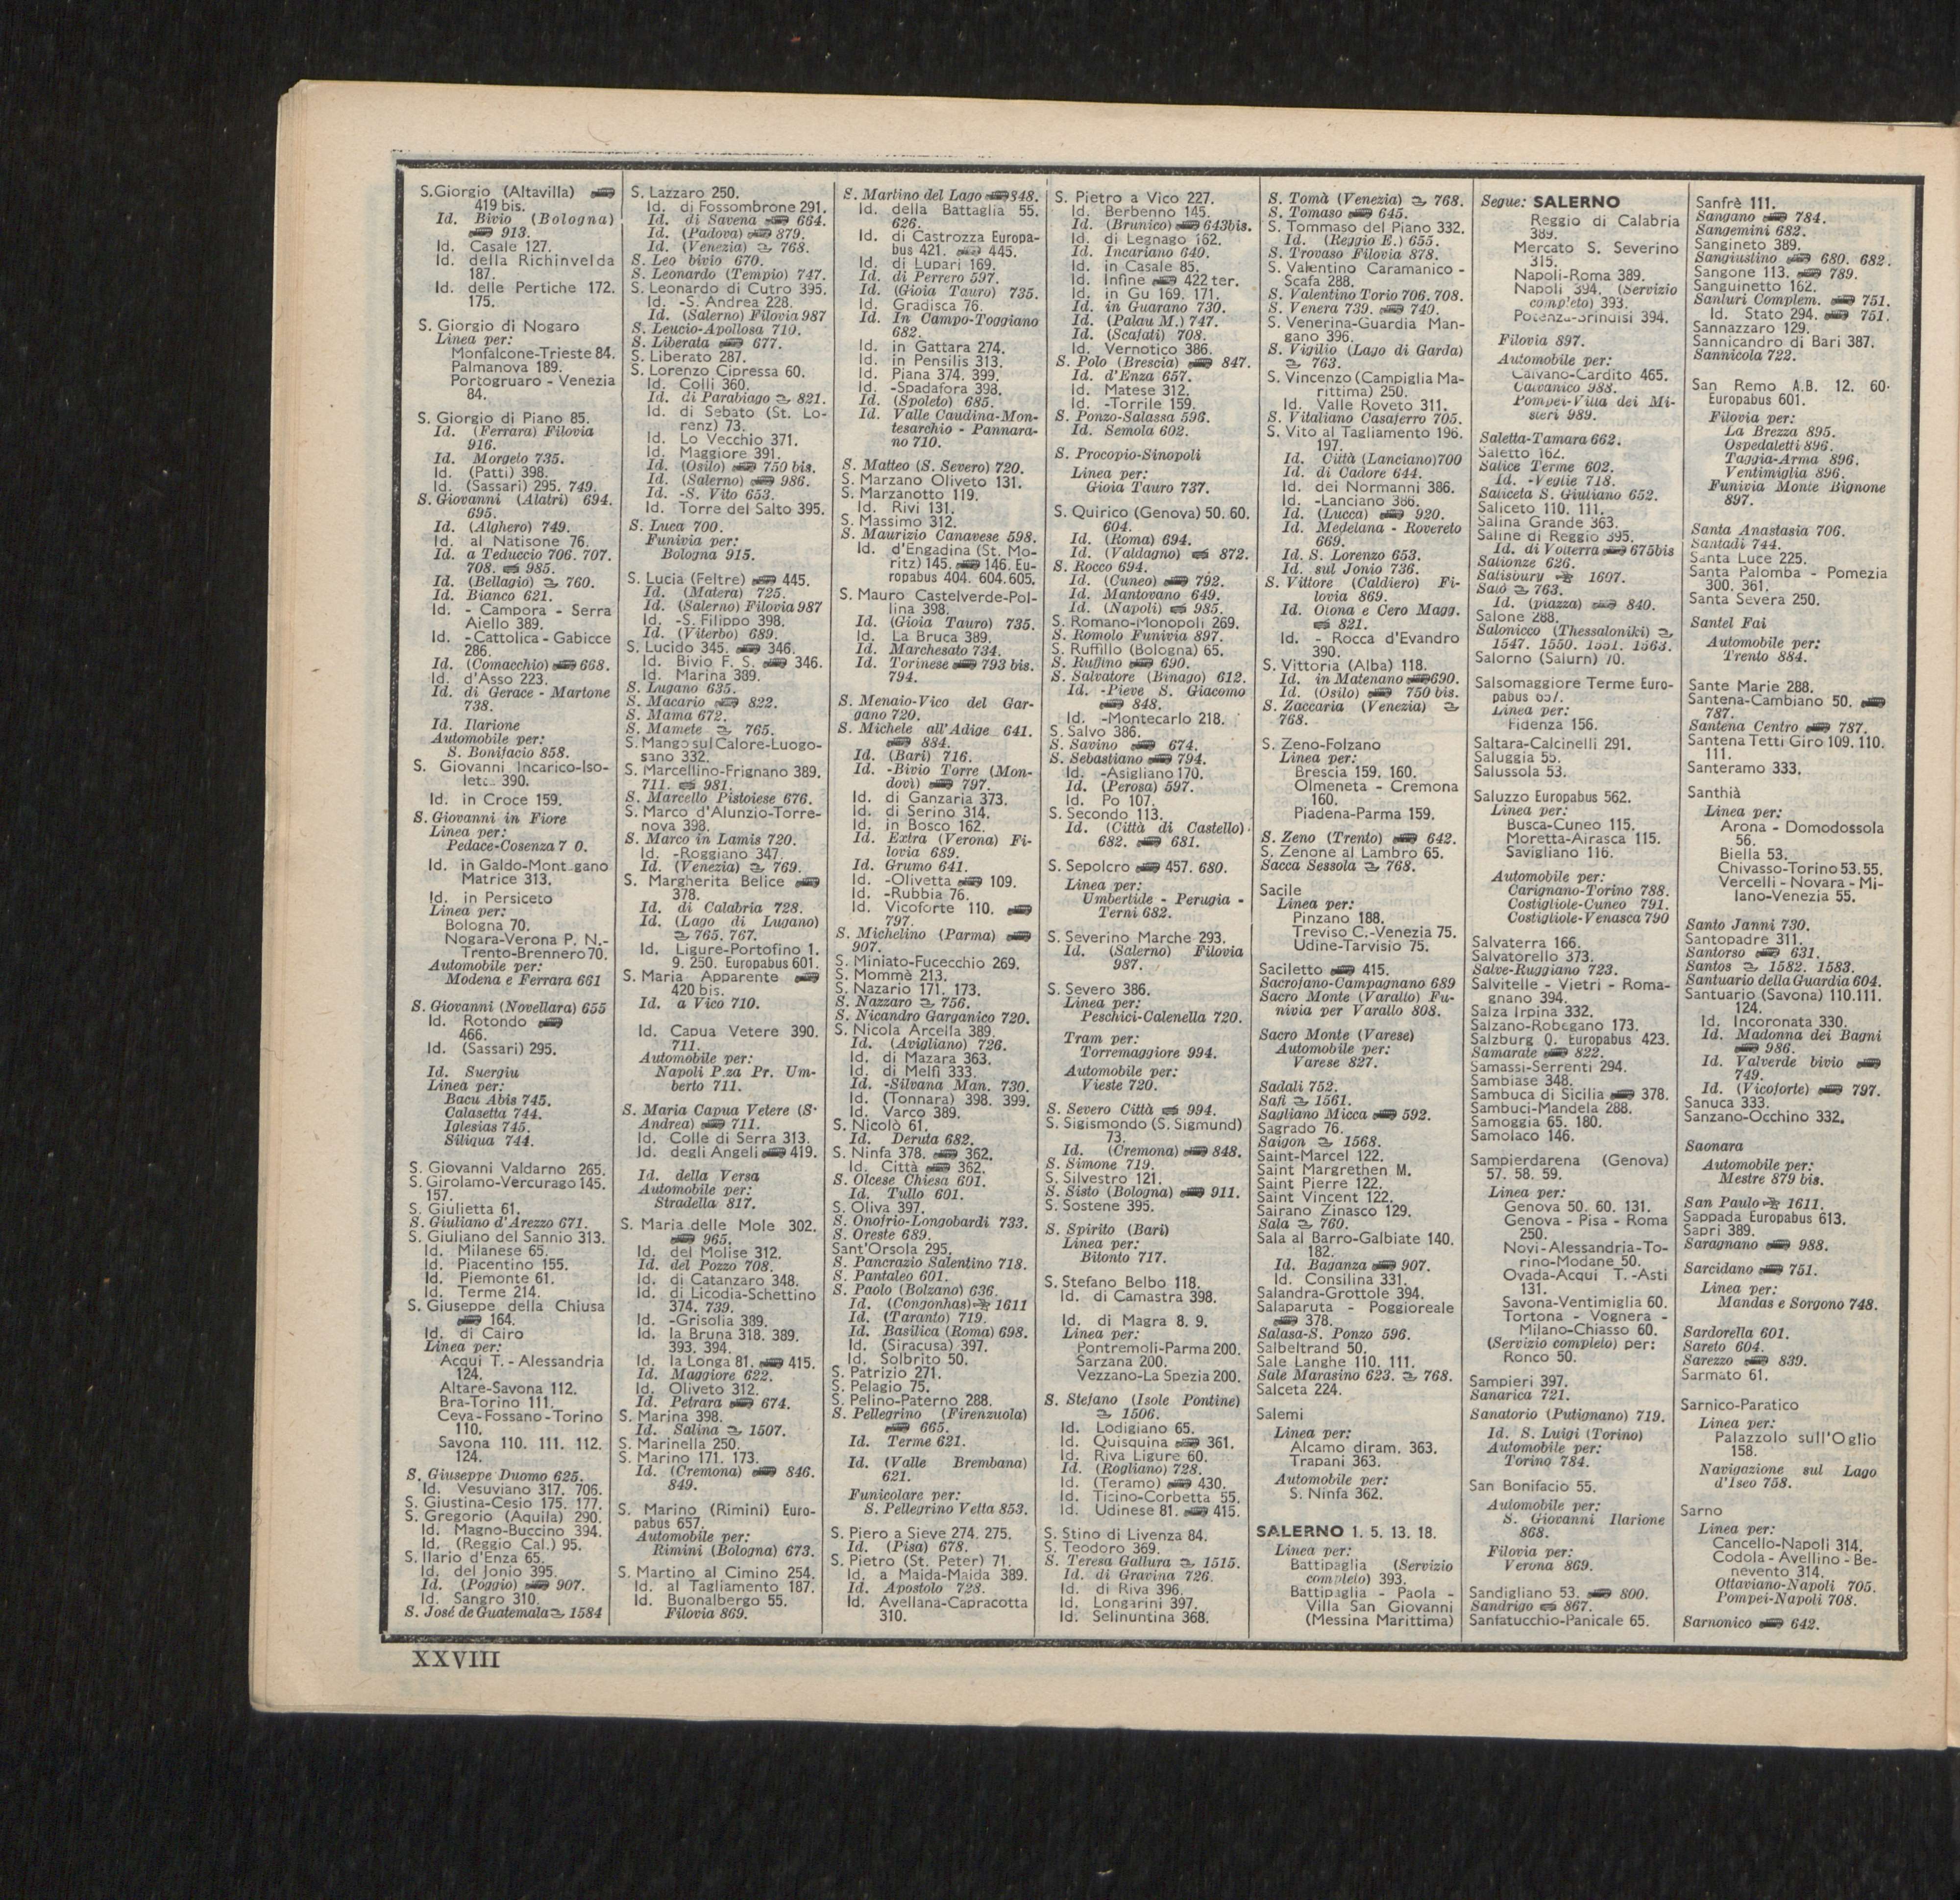 S.Giorgio (Altavilla)
419 bis.
Id. Bivio (Bologna)
913.
Id. Casale 127.
Id. della Richinvelda
187.
Id. delle Pertiche 172.
175.
S. Giorgio di Nogaro
Linea per:
Monfalcone-Trieste 84.
Palmanova 189.
Portogruaro - Venezia
84.
S. Giorgio di Piano 85.
Id. (Ferrara) Filovia
916.
Id. Morgeto 735.
Id. (Patti) 398.
Id. (Sassari) 295. 749.
S. Giovanni (Alatri) 694.
695.
Id. (Alghero) 749.
Id. al Natisone 76.
Id. a Teduccio 706. 707.
708. 985.
Id. (Bellagio) 760.
Id. Bianco 621.
Id. - Campora - Serra
Aiello 389.
Id. - Cattolica - Gabicce
286.
Id. (Comacchio) 668.
Id. d'Asso 223.
Id. di Gerace - Martone
738.
Id. Ilarione
Automobile per:
S. Bonifacio 858.
S. Giovanni Incarico-Iso-
390.
Id. in Croce 159.
S. Giovanni in Fiore
Linea per:
Pedace-Cosenza
Id. in Galdo-
Matrice 313.
Id. in Persiceto
Linea per:
Bologna 70.
Nogara-Verona P. N.-
Trento-Brennero 70.
Automobile per:
Modena e Ferrara 661
S. Giovanni (Novellara) 655
Id. Rotondo
466.
Id. (Sassari) 295.
Id. Suergiu
Linea per:
Bacu Abis 745.
Calasetta 744.
Iglesias 745.
Siliqua 744.
S. Giovanni Valdarno 265.
S. Girolamo-Vercurago 145.
157.
S. Giulietta 61.
S. Giuliano d'Arezzo 671.
S. Giuliano del Sannio 313.
Id. Milanese 65.
Id. Piacentino 155.
Id. Piemonte 61.
Id. Terme 214.
S. Giuseppe della Chiusa
164.
Id. di Cairo
Linea per:
Acqui T. - Alessandria
124.
Altare-Savona 112.
Bra-Torino 111.
Ceva-Fossano-Torino
110.
Savona 110. 111. 112.
124.
S. Giuseppe Duomo 625.
Id. Vesuviano 317. 706.
S. Giustina-Cesio 175. 177.
S. Gregorio (Aquila) 290.
Id. Magno-Buccino 394.
Id. (Reggio Cal.) 95.
S. Ilario d'Enza 65.
Id. del Jonio 395.
Id. (Poggio) 907.
Id. Sangro 310.
S. José de Guatemala 1584
S. Lazzaro 250.
Id. di Fossombrone 291.
Id. di Savena 664.
Id. (Padova) 879.
Id. (Venezia) 768.
S. Leo bivio 670.
S. Leonardo (Tempio) 747.
S. Leonardo di Cutro 395.
Id. -S. Andrea 228.
Id. (Salerno) Filovia 987
S. Leucio-Apollosa 710.
S. Liberata 677.
S. Liberato 287.
S. Lorenzo Cipressa 60.
Id. Colli 360.
Id. di Parabiago 821.
Id. di Sebato (St. Lo-
renz) 73.
Id. Lo Vecchio 371.
Id. Maggiore 391.
Id. (Osilo) 750 bis.
Id. (Salerno) 986.
Id. -S. Vito 653.
Id. Torre del Salto 395.
S. Luca 700.
Funivia per:
Bologna 915.
S. Lucia (Feltre) 445.
Id. (Matera) 725.
Id. (Salerno) Filovia 987
Id. -S. Filippo 398.
Id. (Viterbo) 689.
S. Lucido 345. 346.
Id. Bivio F. S. 346.
Id. Marina 389.
S. Lugano 635.
S. Macario 822.
S. Mama 672.
S. Mamete 765.
S. Mango sul Calore-Luogo-
sano 332.
S. Marcellino-Frignano 389.
711. 981.
S. Marcello Pistoiese 676.
S. Marco d'Alunzio-Torre-
nova 398.
S. Marco in Lamis 720.
Id. -Roggiano 347.
Id. (Venezia) 769.
S. Margherita Belice
378.
Id. di Calabria 728.
Id. (Lago di Lugano)
765. 767.
Id. Ligure-Portofino 1.
9. 250. Europabus 601.
S. Maria Apparente
420 bis.
Id. a Vico 710.
Id. Capua Vetere 390.
711.
Automobile per:
Napoli P.za Pr. Um-
berto 711.
S. Maria Capua Vetere (S.
Andrea) 711.
Id. Colle di Serra 313.
Id. degli Angeli 419.
Id. della Versa
Automobile per:
Stradella 817.
S. Maria delle Mole 302.
965.
Id. del Molise 312.
Id. del Pozzo 708.
Id. di Catanzaro 348.
Id. di Licodia-Schettino
374. 739.
Id. -Grisolia 389.
Id. la Bruna 318. 389.
393. 394.
Id. la Longa 81. 415.
Id. Maggiore 622.
Id. Oliveto 312.
Id. Petrara 674.
S. Marina 398.
Id. Salina 1507.
S. Marinella 250.
S. Marino 171. 173.
Id. (Cremona) 846.
849.
S. Marino (Rimini) Euro-
pabus 657.
Automobile per:
Rimini (Bologna) 673.
S. Martino al Cimino 254.
Id. al Tagliamento 187.
Id. Buonalbergo 55.
Filovia 869.
S. Martino del Lago 848.
Id. della Battaglia 55.
626.
Id. di Castrozza Europa-
bus 421. 445.
Id. di Lupari 169.
Id. di Perrero 597.
Id. (Gioia Tauro) 735.
Id. Gradisca 76.
Id. In Campo-Toggiano
682.
Id. in Gattara 274.
Id. in Pensilis 313.
Id. Piana 374. 399.
Id. -Spadafora 398.
Id. (Spoleto) 685.
Id. Valle Caudina-Mon-
tesarchio - Pannara-
no 710.
S. Matteo (S. Severo) 720.
S. Marzano Oliveto 131.
S. Marzanotto 119.
Id. Rivi 131.
S. Massimo 312.
S. Maurizio Canavese 598.
Id. d'Engadina (St. Mo-
ritz) 145. 146. Eu-
ropabus 404. 604. 605.
S. Mauro Castelverde-Pol-
lina 398.
Id. (Gioia Tauro) 735.
Id. La Bruca 389.
Id. Marchesato 734.
Id. Torinese 793 bis.
794.
S. Menaio-Vico del Gar-
gano 720.
S. Michele all'Adige 641.
884.
Id. (Bari) 716.
Id. -Bivio Torre (Mon-
dovì) 797.
Id. di Ganzaria 373.
Id. di Serino 314.
Id. in Bosco 162.
Id. Extra (Verona) Fi-
lovia 689.
Id. Grumo 641.
Id. -Olivetta 109.
Id. -Rubbia 76.
Id. Vicoforte 110.
797.
S. Michelino (Parma)
907.
S. Miniato-Fucecchio 269.
S. Mommè 213.
S. Nazario 171. 173.
S. Nazzaro 756.
S. Nicandro Garganico 720.
S. Nicola Arcella 389.
Id. (Avigliano) 726.
Id. di Mazara 363.
Id. di Melfi 333.
Id. -Silvana Man. 730.
Id. (Tonnara) 398. 399.
Id. Varco 389.
S. Nicolò 61.
Id. Deruta 682.
S. Ninfa 378. 362.
Id. Città 362.
S. Olcese Chiesa 601.
Id. Tullo 601.
S. Oliva 397.
S. Onofrio-Longobardi 733.
S. Oreste 689.
Sant'Orsola 295.
S. Pancrazio Salentino 718.
S. Pantaleo 601.
S. Paolo (Bolzano) 636.
Id. (Congonhas) 1611
Id. (Taranto) 719.
Id. Basilica (Roma) 698.
Id. (Siracusa) 397.
Id. Solbrito 50.
S. Patrizio 271.
S. Pelagio 75.
S. Pelino-Paterno 288.
S. Pellegrino (Firenzuola)
665.
Id. Terme 621.
Id. (Valle Brembana)
621.
Funicolare per:
S. Pellegrino Vetta 853.
S. Piero a Sieve 274. 275.
Id. (Pisa) 678.
S. Pietro (St. Peter) 71.
Id. a Maida-Maida 389.
Id. Apostolo 728.
Id. Avellana-Capracotta
310.
S. Pietro a Vico 227.
Id. Berbenno 145.
Id. (Brunico) 643bis.
Id. di Legnago 162.
Id. Incariano 640.
Id. in Casale 85.
Id. Infine 422 ter.
Id. in Gu 169. 171.
Id. in Guarano 730.
Id. (Palau M.) 747.
Id. (Scafati) 708.
Id. Vernotico 386.
S. Polo (Brescia) 847.
Id. d'Enza 657.
Id. -Matese 312.
Id. -Torrile 159.
S. Ponzo-Salassa 596.
Id. Semola 602.
S. Procopio-Sinopoli
Linea per:
Gioia Tauro 737.
S. Quirico (Genova) 50. 60.
604.
Id. (Roma) 694.
Id. (Valdagno) 872.
S. Rocco 694.
Id. (Cuneo) 792.
Id. Mantovano 649.
Id. (Napoli) 985.
S. Romano-Monopoli 269.
S. Romolo Funivia 897.
S. Ruffillo (Bologna) 65.
S. Ruffino 690.
S. Salvatore (Binago) 612.
Id. -Pieve S. Giacomo
848.
Id. -Montecarlo 218.
S. Salvo 386.
S. Savino 674.
S. Sebastiano 794.
Id. -Asigliano 170.
Id. (Perosa) 597.
Id. Po 107.
S. Secondo 113.
Id. (Città di Castello)
682. 681.
S. Sepolcro 457. 680.
Linea per:
Umbertide - Perugia -
Terni 682.
S. Severino Marche 293.
Id. (Salerno) Filovia
987.
S. Severo 386.
Linea per:
Peschici-Calenella 720.
Tram per:
Torremaggiore 994.
Automobile per:
Vieste 720.
S. Severo Città 994.
S. Sigismondo (S. Sigmund)
73.
Id. (Cremona) 848.
S. Simone 719.
S. Silvestro 121.
S. Sisto (Bologna) 911.
S. Sostene 395.
S. Spirito (Bari)
Linea per:
Bitonto 717.
S. Stefano Belbo 118.
Id. di Camastra 398.
Id. di Magra 8. 9.
Linea per:
Pontremoli-Parma 200.
Sarzana 200.
Vezzano-La Spezia 200.
S. Stefano (Isole Pontine)
1506.
Id. Lodigiano 65.
Id. Quisquina 361.
Id. Riva Ligure 60.
Id. (Rogliano) 728.
Id. (Teramo) 430.
Id. Ticino-Corbetta 55.
Id. Udinese 81. 415.
S. Stino di Livenza 84.
S. Teodoro 369.
S. Teresa Gallura 1515.
Id. di Gravina 726.
Id. di Riva 396.
Id. Longarini 397.
Id. Selinuntina 368.
S. Tomà (Venezia) 768.
S. Tomaso 645.
S. Tommaso del Piano 332.
Id. (Reggio E.) 655.
S. Trovaso Filovia 878.
S. Valentino Caramanico -
Scafa 288.
S. Valentino Torio 706. 708.
S. Venera 739. 740.
S. Venerina-Guardia Man-
gano 396.
S. Vigilio (Lago di Garda)
763.
S. Vincenzo (Campiglia Ma-
rittima) 250.
Id. Valle Roveto 311.
S. Vitaliano Casaferro 705.
S. Vito al Tagliamento 196.
197.
Id. Città (Lanciano) 700
Id. di Cadore 644.
Id. dei Normanni 386.
Id. -Lanciano 386.
Id. (Lucca) 920.
Id. Medelana - Rovereto
669.
Id. S. Lorenzo 653.
Id. sul Jonio 736.
S. Vittore (Caldiero) Fi-
lovia 869.
Id. Olona e Cero Magg.
821.
Id. - Rocca d'Evandro
390.
S. Vittoria (Alba) 118.
Id. in Matenano 690.
Id. (Osilo) 750 bis.
S. Zaccaria (Venezia)
768.
S. Zeno-Folzano
Linea per:
Brescia 159. 160.
Olmeneta - Cremona
160.
Piadena-Parma 159.
S. Zeno (Trento) 642.
S. Zenone al Lambro 65.
Sacca Sessola 768.
Sacile
Linea per:
Pinzano 188.
Treviso C.-Venezia 75.
Udine-Tarvisio 75.
Saciletto 415.
Sacrofano-Campagnano 689
Sacro Monte (Varallo) Fu-
nivia per Varallo 808.
Sacro Monte (Varese)
Automobile per:
Varese 827.
Sadali 752.
Safi 1561.
Sagliano Micca 592.
Sagrado 76.
Saigon 1568.
Saint-Marcel 122.
Saint Margrethen M.
Saint Pierre 122.
Saint Vincent 122.
Sairano Zinasco 129.
Sala 760.
Sala al Barro-Galbiate 140.
182.
Id. Baganza 907.
Id. Consilina 331.
Salandra-Grottole 394.
Salaparuta - Poggioreale
378.
Salasa-S. Ponzo 596.
Salbeltrand 50.
Sale Langhe 110. 111.
Sale Marasino 623. 768.
Salceta 224.
Salemi
Linea per:
Alcamo diram. 363.
Trapani 363.
Automobile per:
S. Ninfa 362.
SALERNO 1. 5. 13. 18.
Linea per:
Battipaglia (Servizio
completo) 393.
Battipaglia - Paola -
Villa San Giovanni
(Messina Marittima)
Segue: SALERNO
Reggio di Calabria
389.
Mercato S. Severino
315.
Napoli-Roma 389.
Napoli 394. (Servizio
completo) 393.
Potenza-Brindisi 394.
Filovia 897.
Automobile per:
Calvano-Cardito 465.
Calvanico 988.
Pompei-Villa dei Mi-
steri 989.
Saletta-Tamara 662.
Saletto 162.
Salice Terme 602.
Id. -Veglie 718.
Saliceta S. Giuliano 652.
Saliceto 110. 111.
Salina Grande 363.
Saline di Reggio 395.
Id. di Volterra 675bis
Salionze 626.
Salisbury 1607.
Salò 763.
Id. (piazza) 840.
Salone 288.
Salonicco (Thessaloniki)
1547. 1550. 1551. 1563.
Salorno (Salurn) 70.
Salsomaggiore Terme Euro-
pabus 657.
Linea per:
Fidenza 156.
Saltara-Calcinelli 291.
Saluggia 55.
Salussola 53.
Saluzzo Europabus 562.
Linea per:
Busca-Cuneo 115.
Moretta-Airasca 115.
Savigliano 116.
Automobile per:
Carignano-Torino 788.
Costigliole-Cuneo 791.
Costigliole-Venasca 790
Salvaterra 166.
Salvatorello 373.
Salve-Ruggiano 723.
Salvitelle - Vietri - Roma-
gnano 394.
Salza Irpina 332.
Salzano-Robegano 173.
Salzburg Q. Europabus 423.
Samarate 822.
Samassi-Serrenti 294.
Sambiase 348.
Sambuca di Sicilia 378.
Sambuci-Mandela 288.
Samoggia 65. 180.
Samolaco 146.
Sampierdarena (Genova)
57. 58. 59.
Linea per:
Genova 50. 60. 131.
Genova - Pisa - Roma
250.
Novi-Alessandria-To-
rino-Modane 50.
Ovada-Acqui T. -Asti
131.
Savona-Ventimiglia 60.
Tortona - Vognera -
Milano-Chiasso 60.
(Servizio completo) per:
Ronco 50.
Sampieri 397.
Sanarica 721.
Sanatorio (Putignano) 719.
Id. S. Luigi (Torino)
Automobile per:
Torino 784.
San Bonifacio 55.
Automobile per:
S. Giovanni Ilarione
868.
Filovia per:
Verona 869.
Sandigliano 53. 800.
Sandrigo 867.
Sanfatucchio-Panicale 65.
Sanfrè 111.
Sangano 784.
Sangemini 682.
Sangineto 389.
Sangiustino 680. 682.
Sangone 113. 789.
Sanguinetto 162.
Sanluri Complem. 751.
Id. Stato 294. 751.
Sannazzaro 129.
Sannicandro di Bari 387.
Sannicola 722.
San Remo A.B. 12. 60.
Europabus 601.
Filovia per:
La Brezza 895.
Ospedaletti 896.
Taggia-Arma 896.
Ventimiglia 896.
Funivia Monte Bignone
897.
Santa Anastasia 706.
Santadi 744.
Santa Luce 225.
Santa Palomba - Pomezia
300. 361.
Santa Severa 250.
Santel Fai
Automobile per:
Trento 884.
Sante Marie 288.
Santena-Cambiano 50.
787.
Santena Centro 787.
Santena Tetti Giro 109. 110.
111.
Santeramo 333.
Santhià
Linea per:
Arona - Domodossola
56.
Biella 53.
Chivasso-Torino 53. 55.
Vercelli - Novara - Mi-
lano-Venezia 55.
Santo Janni 730.
Santopadre 311.
Santorso 631.
Santos 1582. 1583.
Santuario della Guardia 604.
Santuario (Savona) 110. 111.
124.
Id. Incoronata 330.
Id. Madonna dei Bagni
986.
Id. Valverde bivio
749.
Id. (Vicoforte) 797.
Sanuca 333.
Sanzano-Occhino 332.
Saonara
Automobile per:
Mestre 879 bis.
San Paulo 1611.
Sappada Europabus 613.
Sapri 389.
Saragnano 988.
Sarcidano 751.
Linea per:
Mandas e Sorgono 748.
Sardorella 601.
Sareto 604.
Sarezzo 839.
Sarmato 61.
Sarnico-Paratico
Linea per:
Palazzolo sull'Oglio
158.
Navigazione sul Lago
d'Iseo 758.
Sarno
Linea per:
Cancello-Napoli 314.
Codola - Avellino - Be-
nevento 314.
Ottaviano-Napoli 705.
Pompei-Napoli 708.
Sarnonico 642.
XXVIII